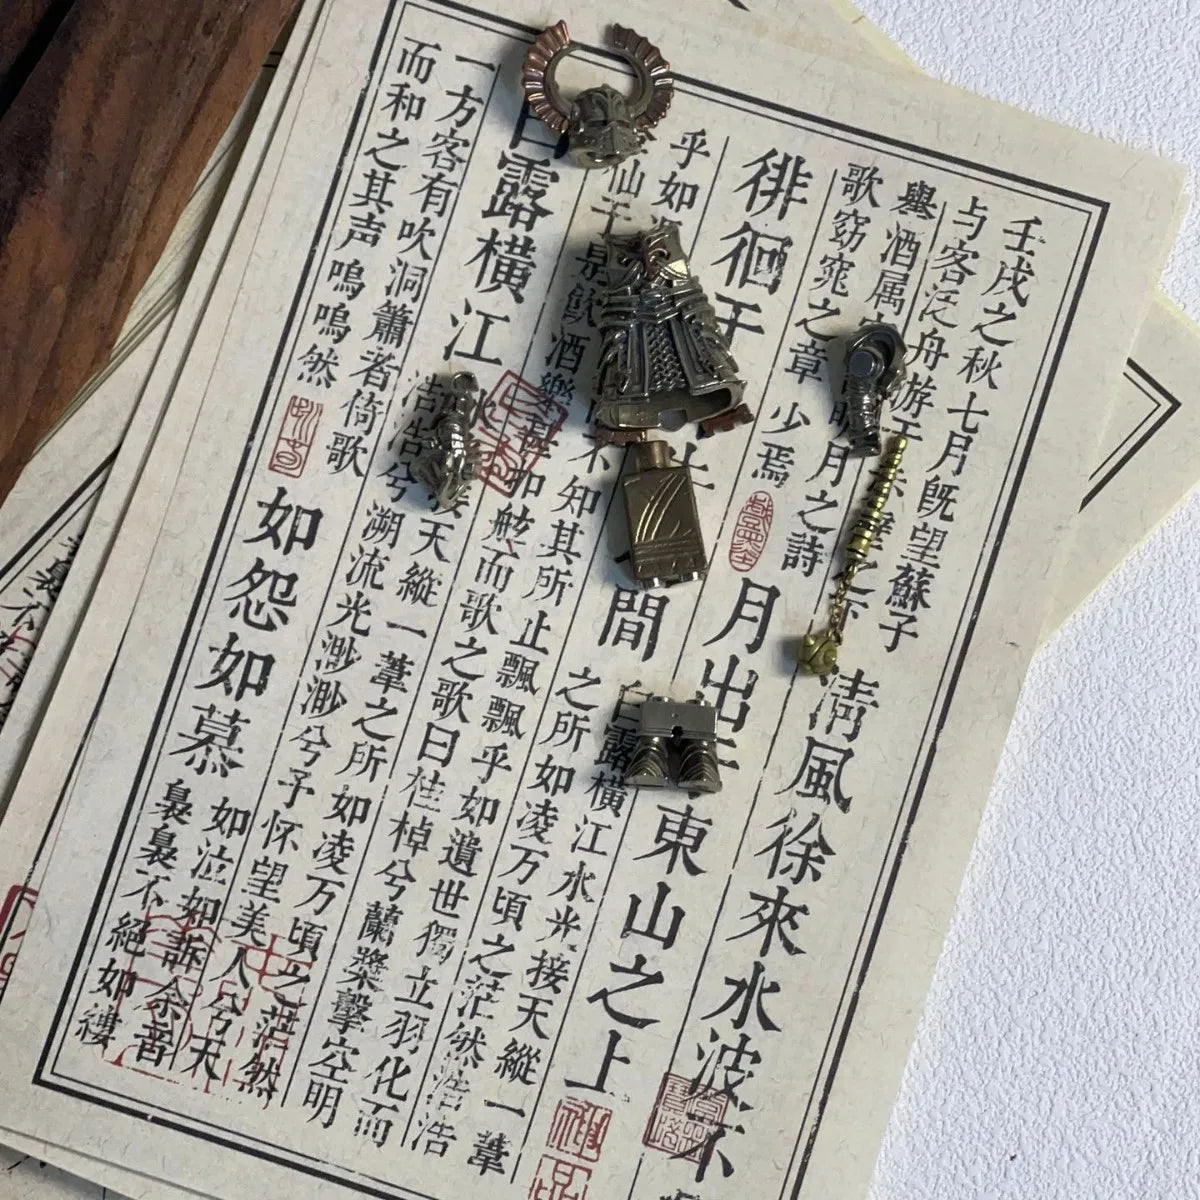 壬戌之秋七月既望蘇子
与客泛舟游于壁之下
舉酒属明月之詩
歌窈窕之章少焉
清風徐來水波不
月出于東山之上
徘徊于間
白露橫江水光接天縱一葦
之所如凌万頃之茫然浩浩
乎如不知其所止飄飄乎如遺世獨立羽化而
仙于是飲酒樂甚扣舷而歌之歌曰桂棹兮蘭槳擊空明
白露橫江
水接天縱一葦之所如凌万頃之茫然
浩浩兮溯流光渺渺兮予怀望美人兮天
一方客有吹洞簫者倚歌
而和之其声嗚嗚然
如怨如慕
如泣如訴余音
裊裊不絕如縷